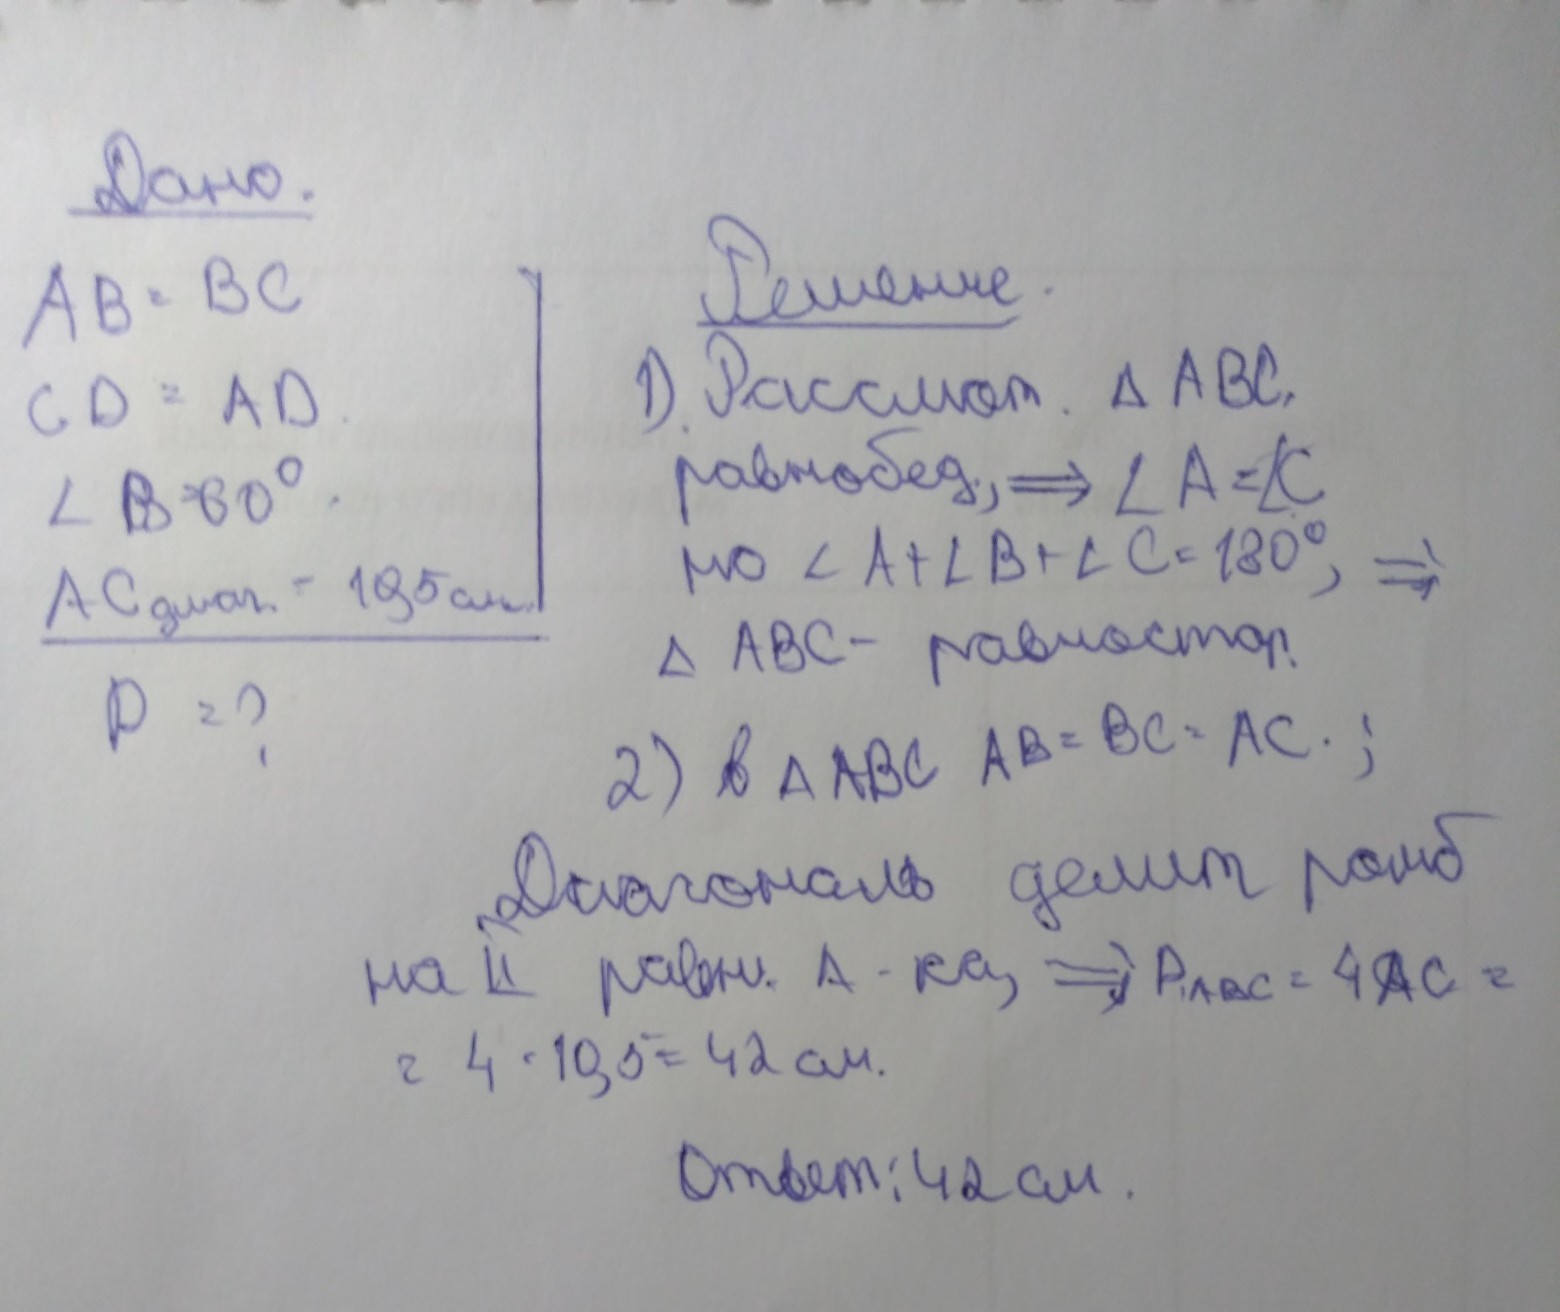 Дано.
AB = BC
CD = AD.
∠ B = 60°.
AC диаг. = 10,5 см.
P = ?
Решение.
1). Рассмот. Δ ABC.
равнобед., ⟹ ∠ A = ∠C
но ∠ A + ∠ B + ∠ C = 180°, ⟹
Δ ABC - равностор.
2) в Δ ABC AB = BC = AC. ;
Диагональ делит ромб
на II равн. Δ - ка, ⟹ P ABC = 4AC =
= 4 · 10,5 = 42 см.
Ответ: 42 см.